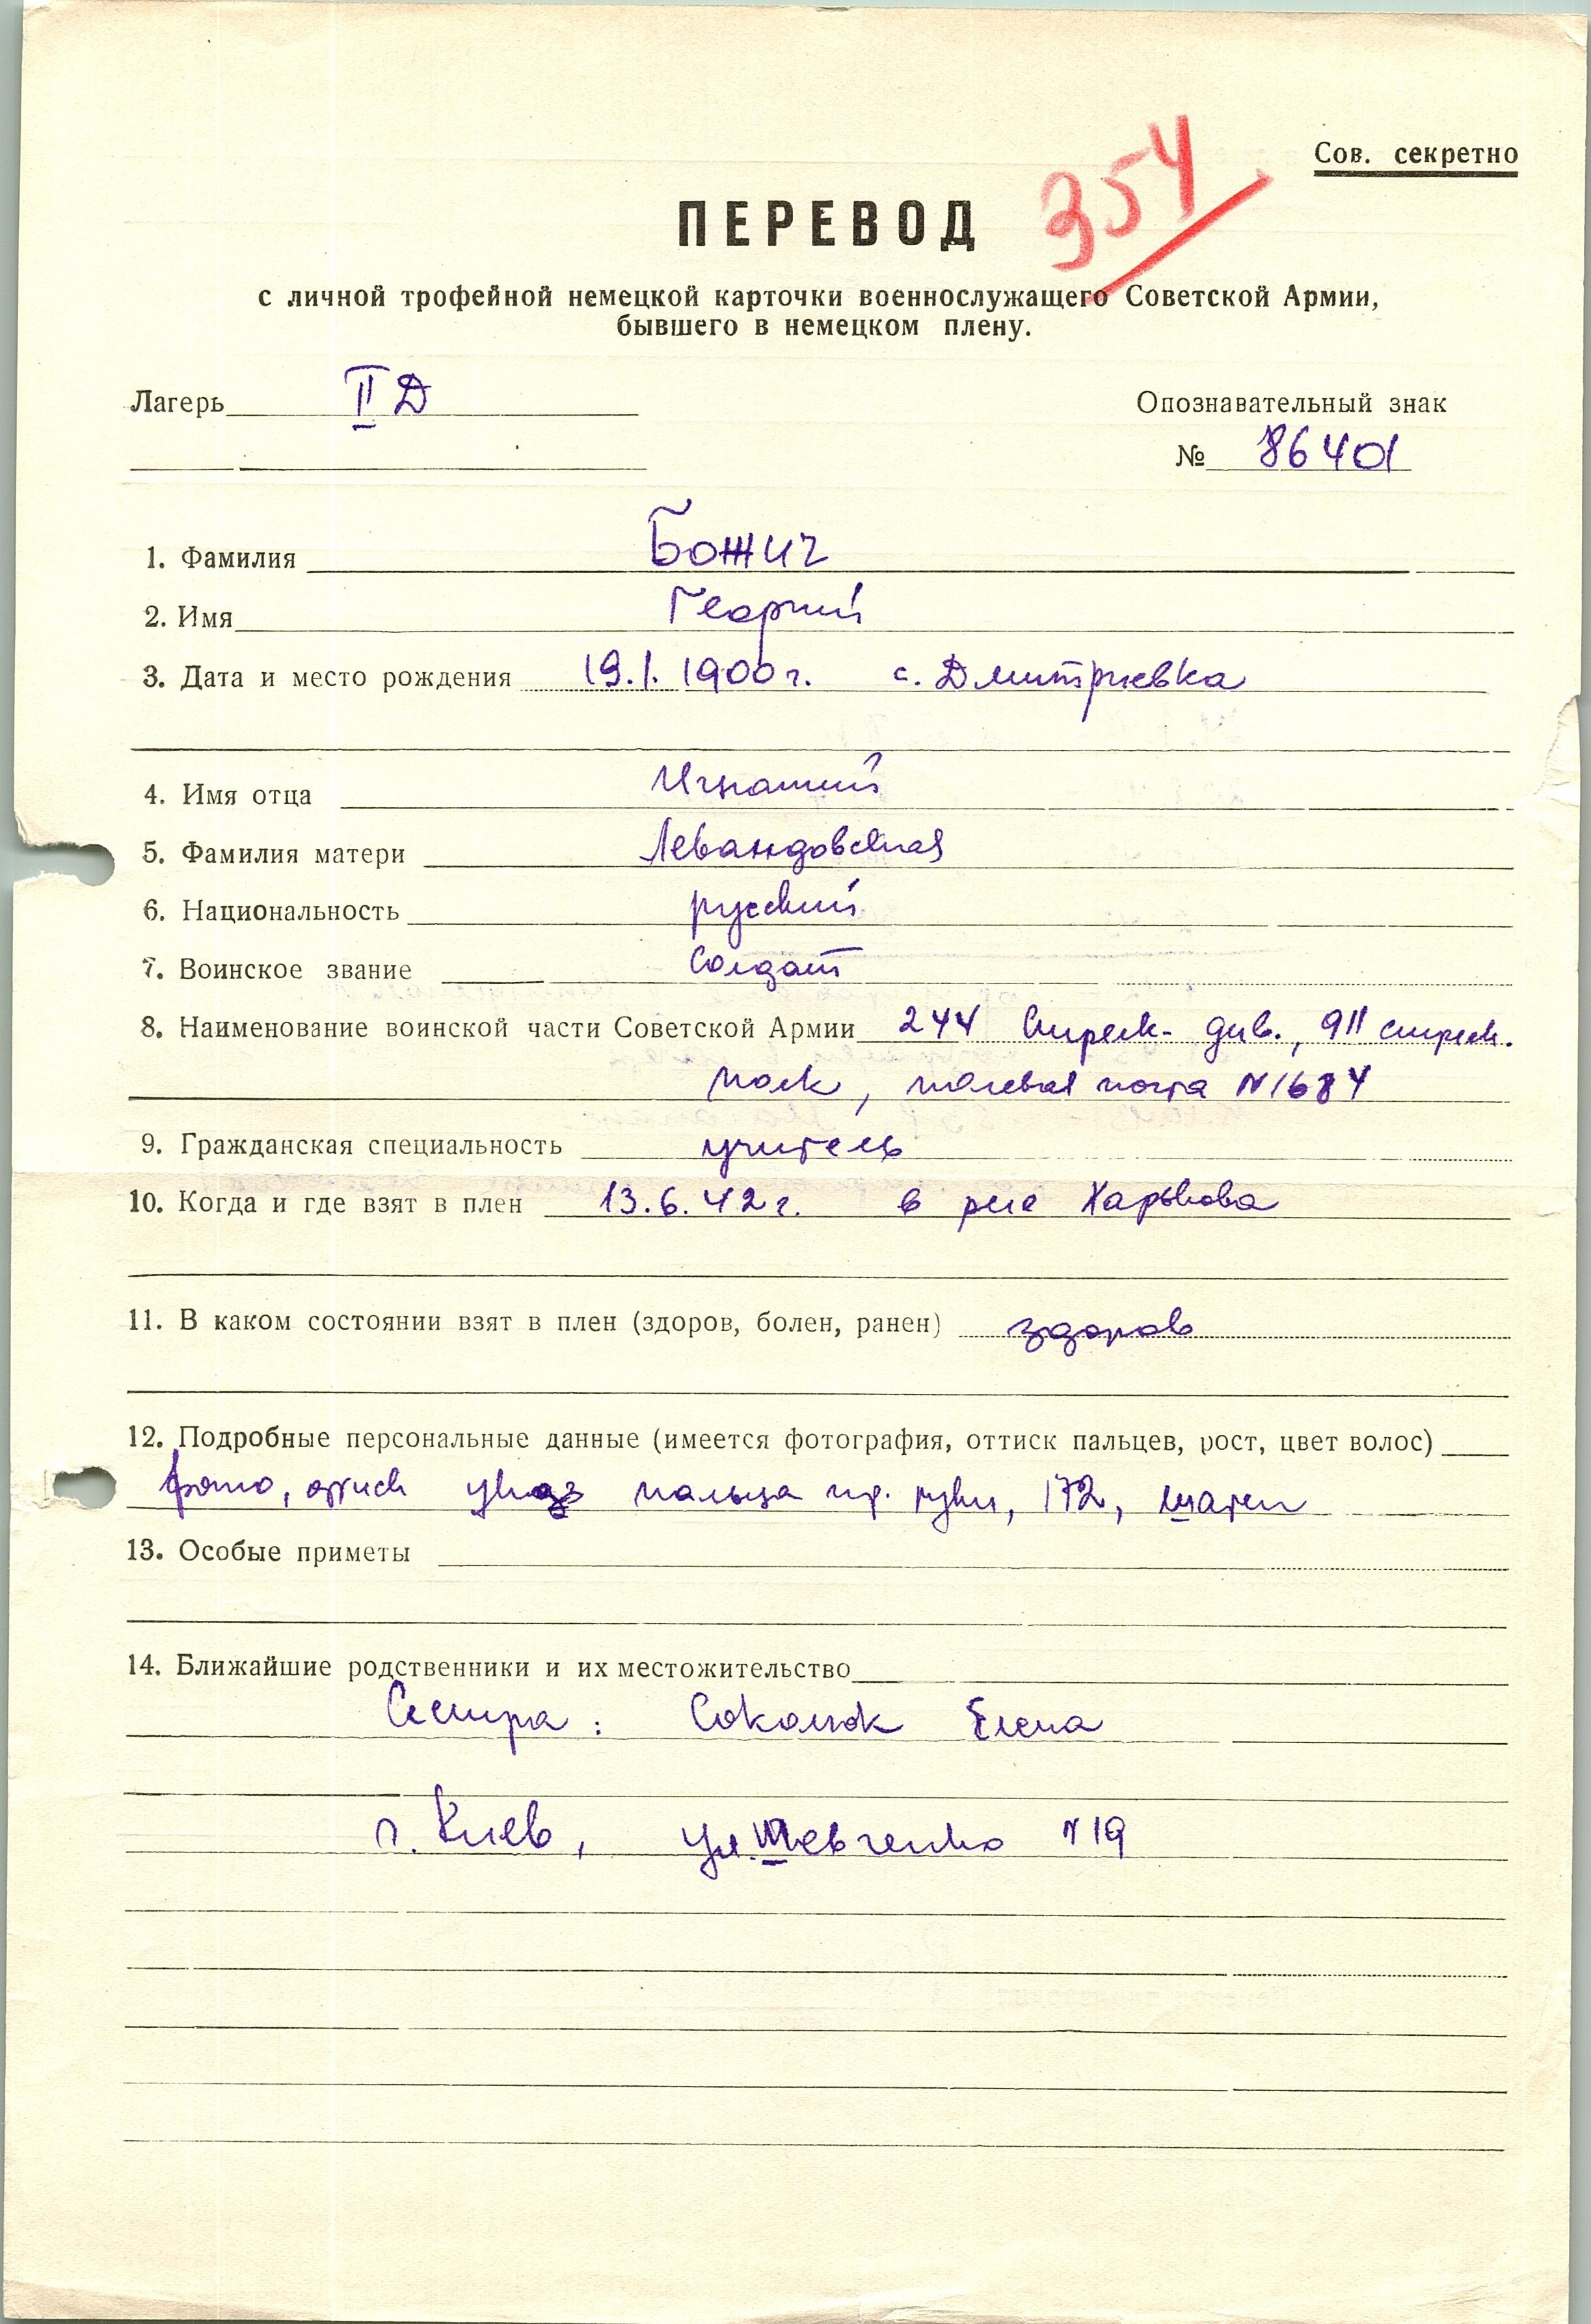 Сов. секретно
354
ПЕРЕВОД
с личной трофейной немецкой карточки военнослужащего Советской Армии,
бывшего в немецком плену.
Лагерь II Д
Опознавательный знак
№ 86401
1. Фамилия Божич
2. Имя Георгий
3. Дата и место рождения 19.1.1900 г. с. Дмитриевка
4. Имя отца Игнатий
5. Фамилия матери Левандовская
6. Национальность русский
7. Воинское звание солдат
8. Наименование воинской части Советской Армии 244 стрелк. див., 911 стрелк.
полк, полевая почта N 1684
9. Гражданская специальность учитель
10. Когда и где взят в плен 13.6.42 г. в р-не Харькова
11. В каком состоянии взят в плен (здоров, болен, ранен) здоров
12. Подробные персональные данные (имеется фотография, оттиск пальцев, рост, цвет волос)
фото, оттиск указ пальца пр. руки, 172, шатен
13. Особые приметы
14. Ближайшие родственники и их местожительство
Сестра: Соколюк Елена
г. Киев, ул. Шевченко N 19